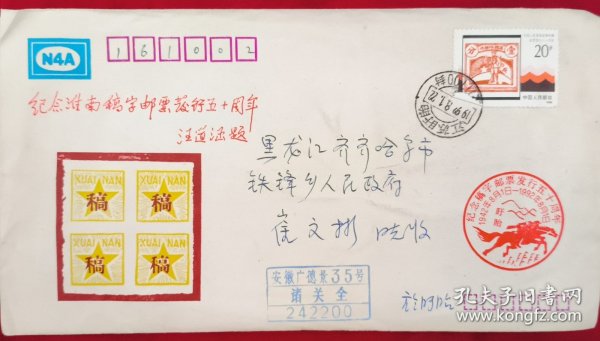 N4A
161002
纪念淮南稿字邮票发行五十周年
汪道涵题
20分
中国人民邮政
江苏盱眙
黑龙江齐齐哈尔市
铁锋乡人民政府
崔文彬 收
XUAI NAN
稿
XUAI NAN
稿
XUAI NAN
稿
XUAI NAN
稿
纪念稿字邮票发行五十周年
1942年8月1日—1992年8月1日
盱眙
安徽广德景35号
诸关全
242200
孔夫子旧书网
kongfz.com